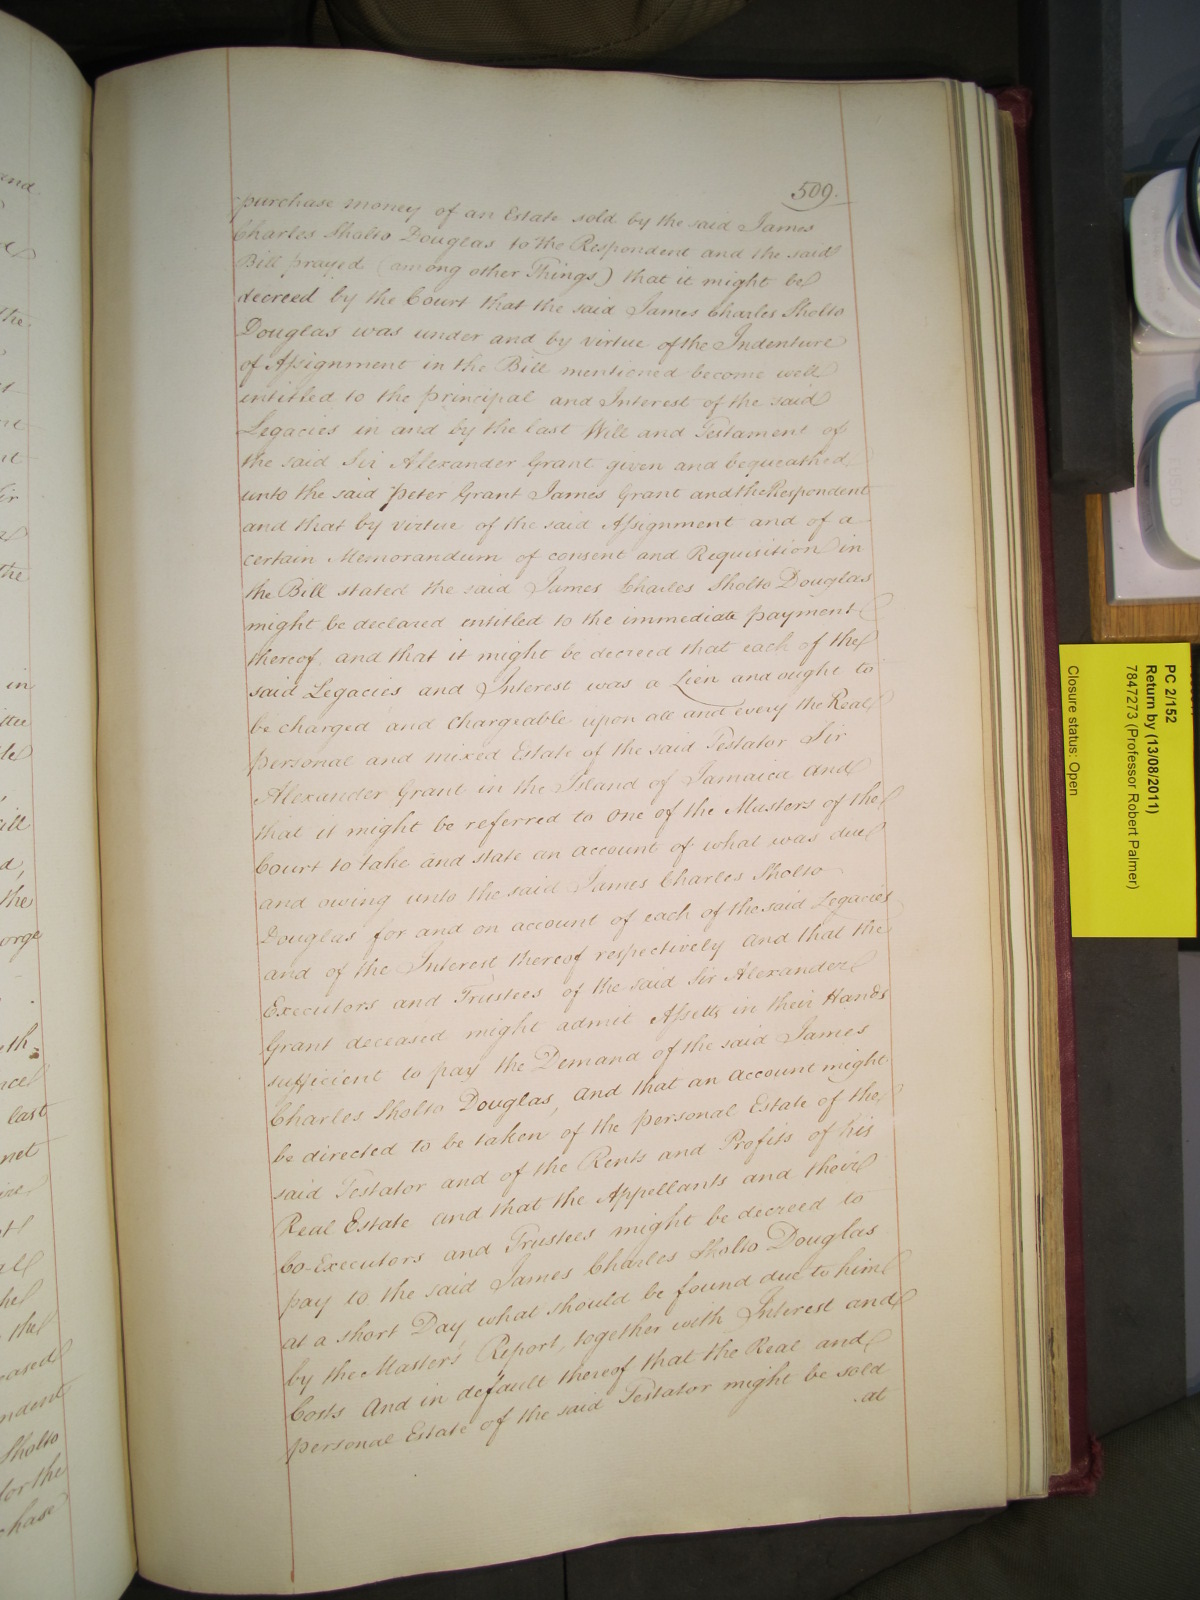 509.
purchase money of an Estate sold by the said James
Charles Sholto Douglas to the Respondent and the said
Bill prayed (among other Things) that it might be
decreed by the Court that the said James Charles Sholto
Douglas was under and by virtue of the Indenture
of Assignment in the Bill mentioned become well
entitled to the principal and Interest of the said
Legacies in and by the last Will and Testament of
the said Sir Alexander Grant given and bequeathed
unto the said Peter Grant James Grant and the Respondent
and that by virtue of the said Assignment and of a
certain Memorandum of consent and Requisition in
the Bill stated the said James Charles Sholto Douglas
might be declared entitled to the immediate payment
thereof, and that it might be decreed that each of the
said Legacies and Interest was a Lien and ought to
be charged and chargeable upon all and every the Real
personal and mixed Estate of the said Testator Sir
Alexander Grant in the Island of Jamaica And
that it might be referred to one of the Masters of the
Court to take and state an account of what was due
and owing unto the said James Charles Sholto
Douglas for and on account of each of the said Legacies
and of the Interest thereof respectively And that the
Executors and Trustees of the said Sir Alexander
Grant deceased might admit Assetts in their Hands
sufficient to pay the Demand of the said James
Charles Sholto Douglas, And that an account might
be directed to be taken of the personal Estate of the
said Testator and of the Rents and Profits of his
Real Estate and that the Appellants and their
Co-Executors and Trustees might be decreed to
pay to the said James Charles Sholto Douglas
at a short Day, what should be found due to him
by the Master's Report, together with Interest and
Costs And in default thereof that the Real and
personal Estate of the said Testator might be sold
at
and
the
Sir
the
in
the
orge
last
the
Sholto
for the
chase
PC 2/152
Return by (13/08/2011)
7847273 (Professor Robert Palmer)
Closure status: Open